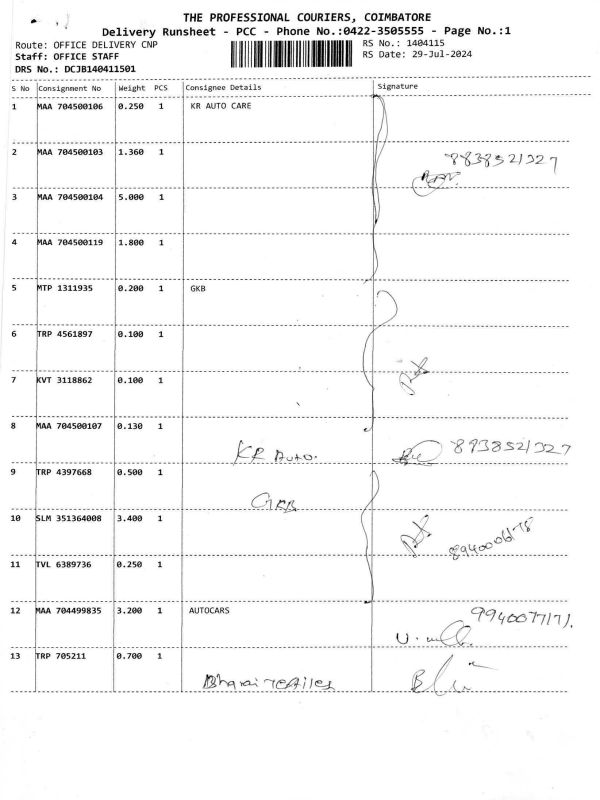 THE PROFESSIONAL COURIERS, COIMBATORE
Delivery Runsheet - PCC - Phone No.:0422-3505555 - Page No.:1
Route: OFFICE DELIVERY CNP
Staff: OFFICE STAFF
DRS No.: DCJB140411501
RS No.: 1404115
RS Date: 29-Jul-2024
S No Consignment No Weight PCS Consignee Details Signature
1 MAA 704500106 0.250 1 KR AUTO CARE
2 MAA 704500103 1.360 1 8838521327
3 MAA 704500104 5.000 1
4 MAA 704500119 1.800 1
5 MTP 1311935 0.200 1 GKB
6 TRP 4561897 0.100 1
7 KVT 3118862 0.100 1
8 MAA 704500107 0.130 1
KR Auto. 8938521327
9 TRP 4397668 0.500 1
GKB
10 SLM 351364008 3.400 1
11 TVL 6389736 0.250 1
12 MAA 704499835 3.200 1 AUTOCARS
13 TRP 705211 0.700 1